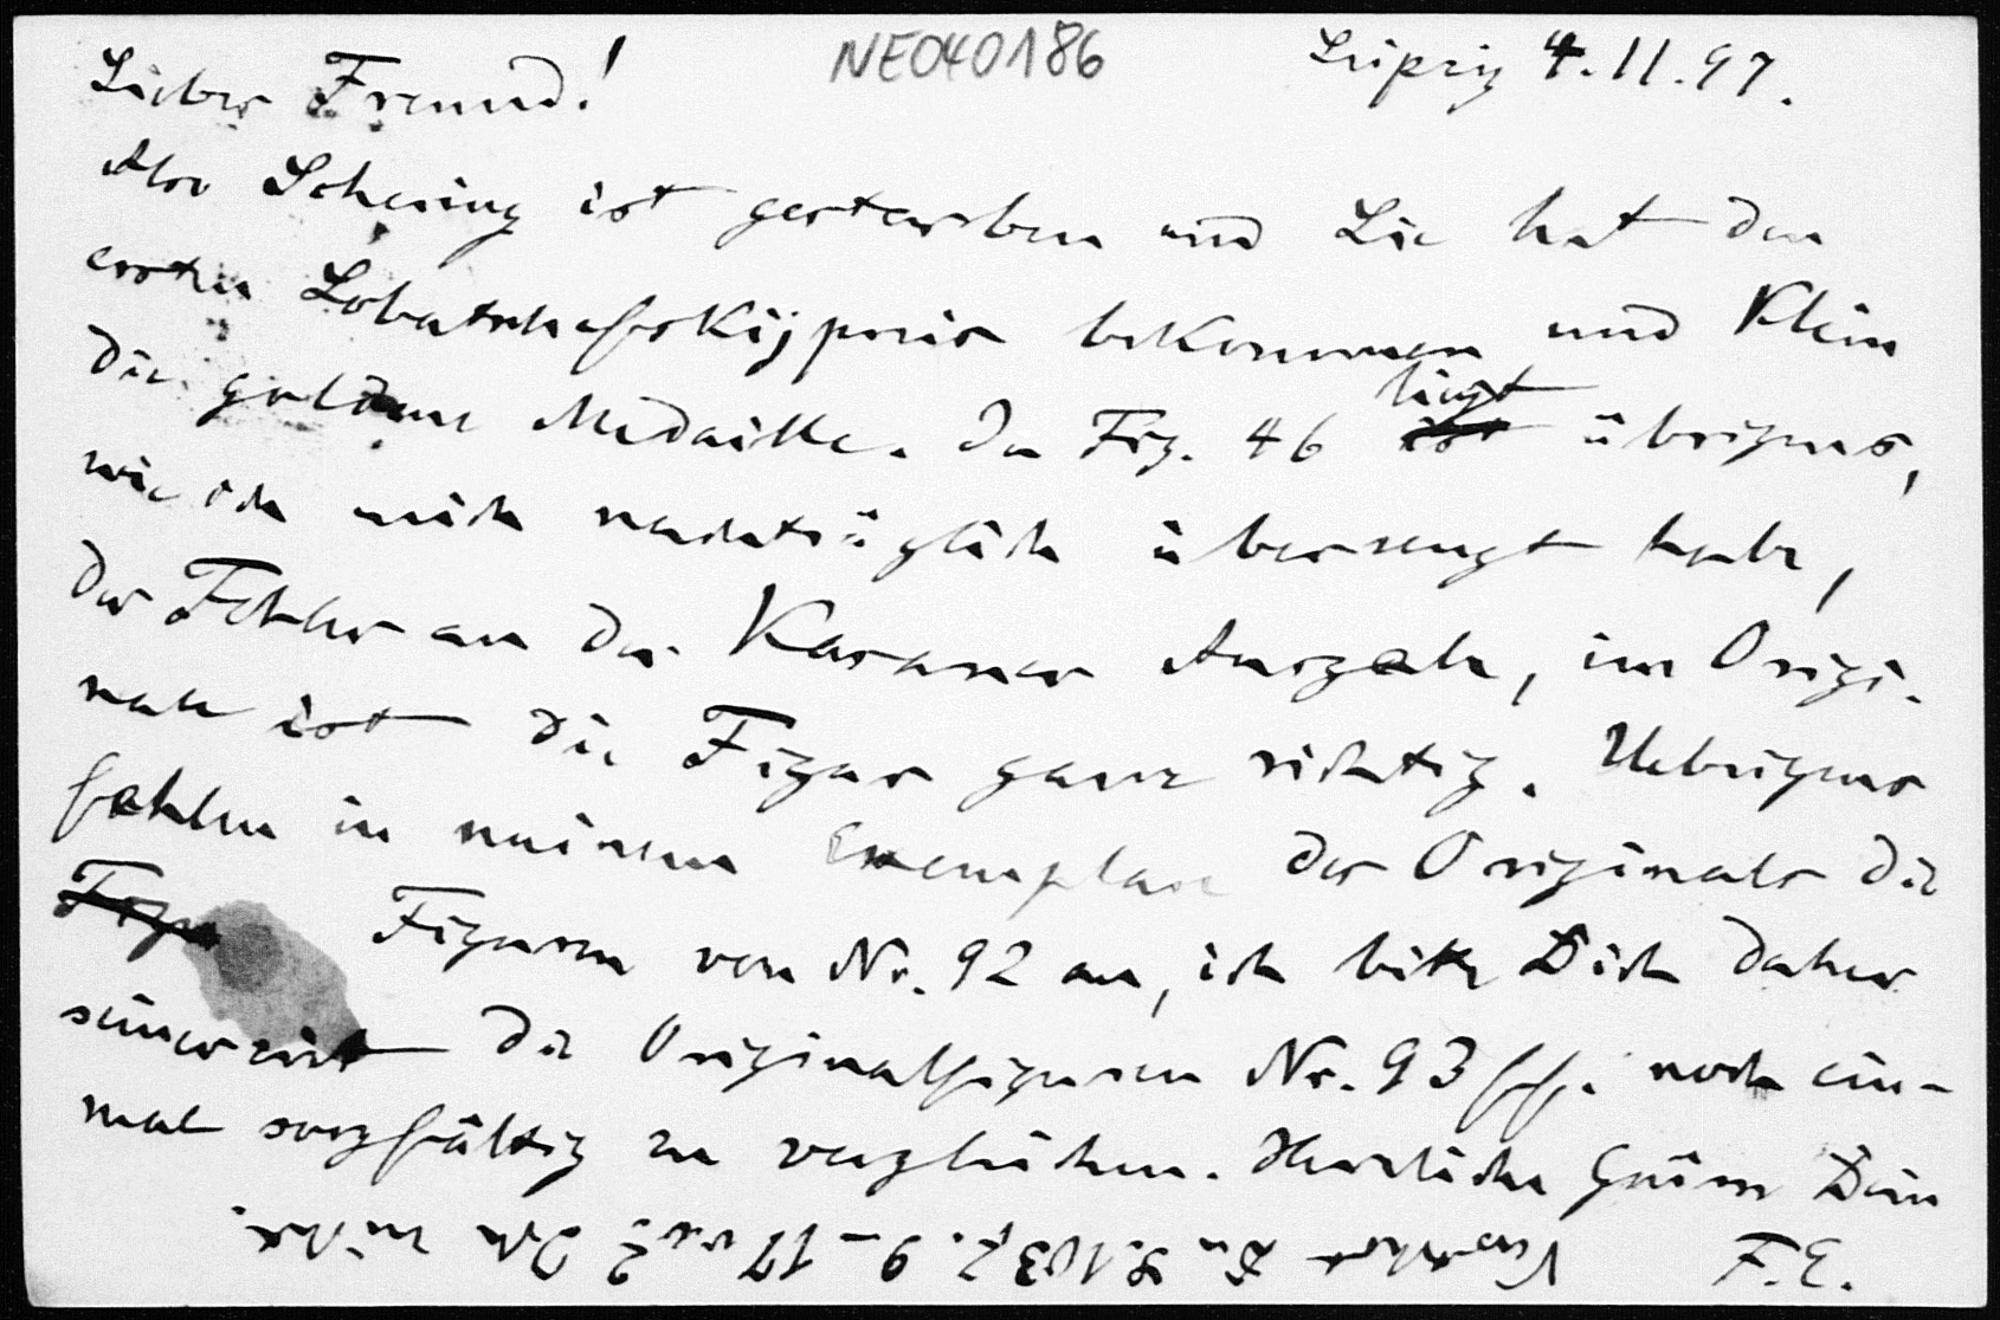 NEO40186
Leipzig 4.11.97.
Lieber Freund!
Also Schering ist gestorben und Lie hat den
ersten Lobatschefskijpreis bekommen und Klein
die goldene Medaille. In Fig. 46 ist liegt übrigens,
wie ich mich nachträglich überzeugt habe,
der Fehler an der Kasaner Ausgabe, im Origi-
nale ist die Figur ganz richtig. Uebrigens
fehlen in meinem Exemplare des Originals die
Figu Figuren von Nr. 92 an, ich bitte Dich daher
seinerzeit die Originalfiguren Nr. 93 ff. noch ein-
mal sorgfältig zu vergleichen. Herzliche Grüsse Dein
F.E.
Verstehst Du S. 103, Z. 9–17 v.u.? Ich nicht.